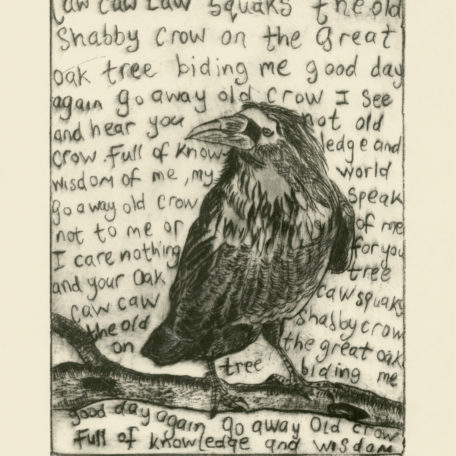 caw caw caw squaks the old
Shabby crow on the great
oak tree biding me good day
again go away old crow I see
and hear you not old
crow, full of knowledge and
wisdom of me, my world
go away old crow Speak
not to me or of me
I care nothing for you
and your Oak tree
caw caw caw squaks
the old shabby crow
on the great oak
tree biding me
good day again go away Old crow
Full of knowledge and wisdom